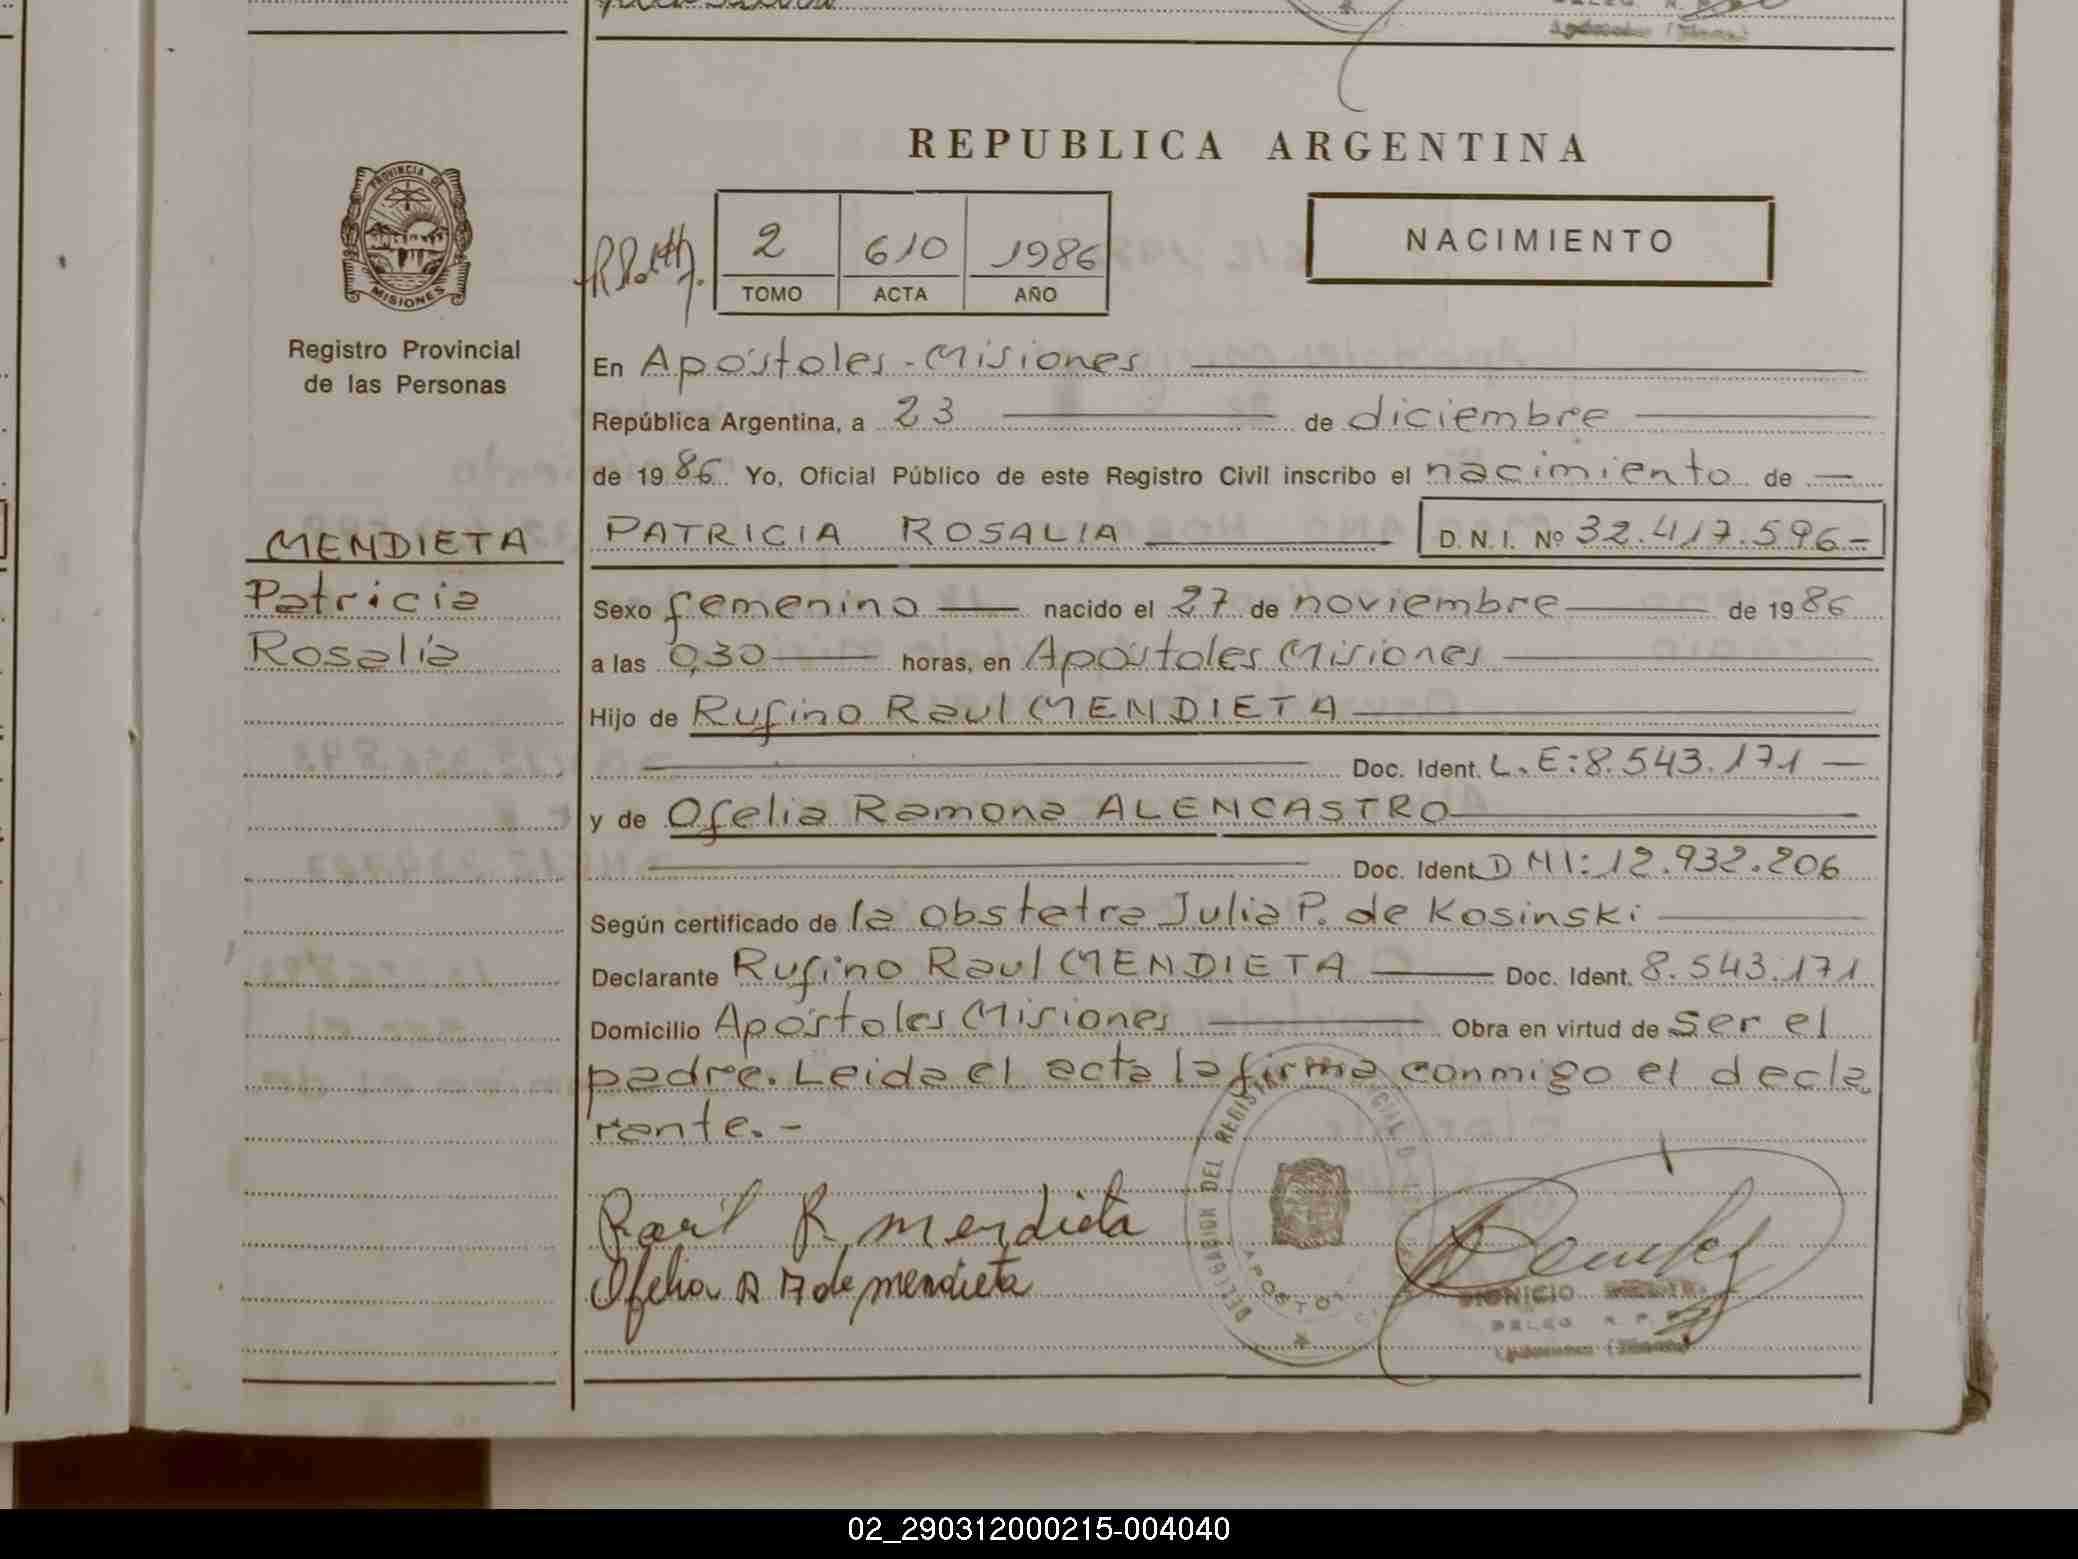 REPUBLICA ARGENTINA
PROVINCIA DE
MISIONES
Registro Provincial
de las Personas
2 610 1986
TOMO ACTA AÑO
NACIMIENTO
En Apóstoles - Misiones
República Argentina, a 23 de diciembre
de 1986 Yo, Oficial Público de este Registro Civil inscribo el nacimiento de
MENDIETA
Patricia
Rosalía
PATRICIA ROSALIA D. N. I. Nº 32.417.596-
Sexo femenino nacido el 27 de noviembre de 1986
a las 0,30 horas, en Apóstoles Misiones
Hijo de Rufino Raul MENDIETA
Doc. Ident. L.E:8.543.171
y de Ofelia Ramona ALENCASTRO
Doc. Ident. DNI:12.932.206
Según certificado de la obstetra Julia P. de Kosinski
Declarante Rufino Raul MENDIETA Doc. Ident. 8.543.171
Domicilio Apóstoles Misiones Obra en virtud de ser el
padre. Leida el acta la firma conmigo el decla
rante.-
Raúl R mendieta
Ofelia R A de mendieta
DELEGACION DEL REGISTRO
DIONICIO
DELEG. R. P.
02_290312000215-004040